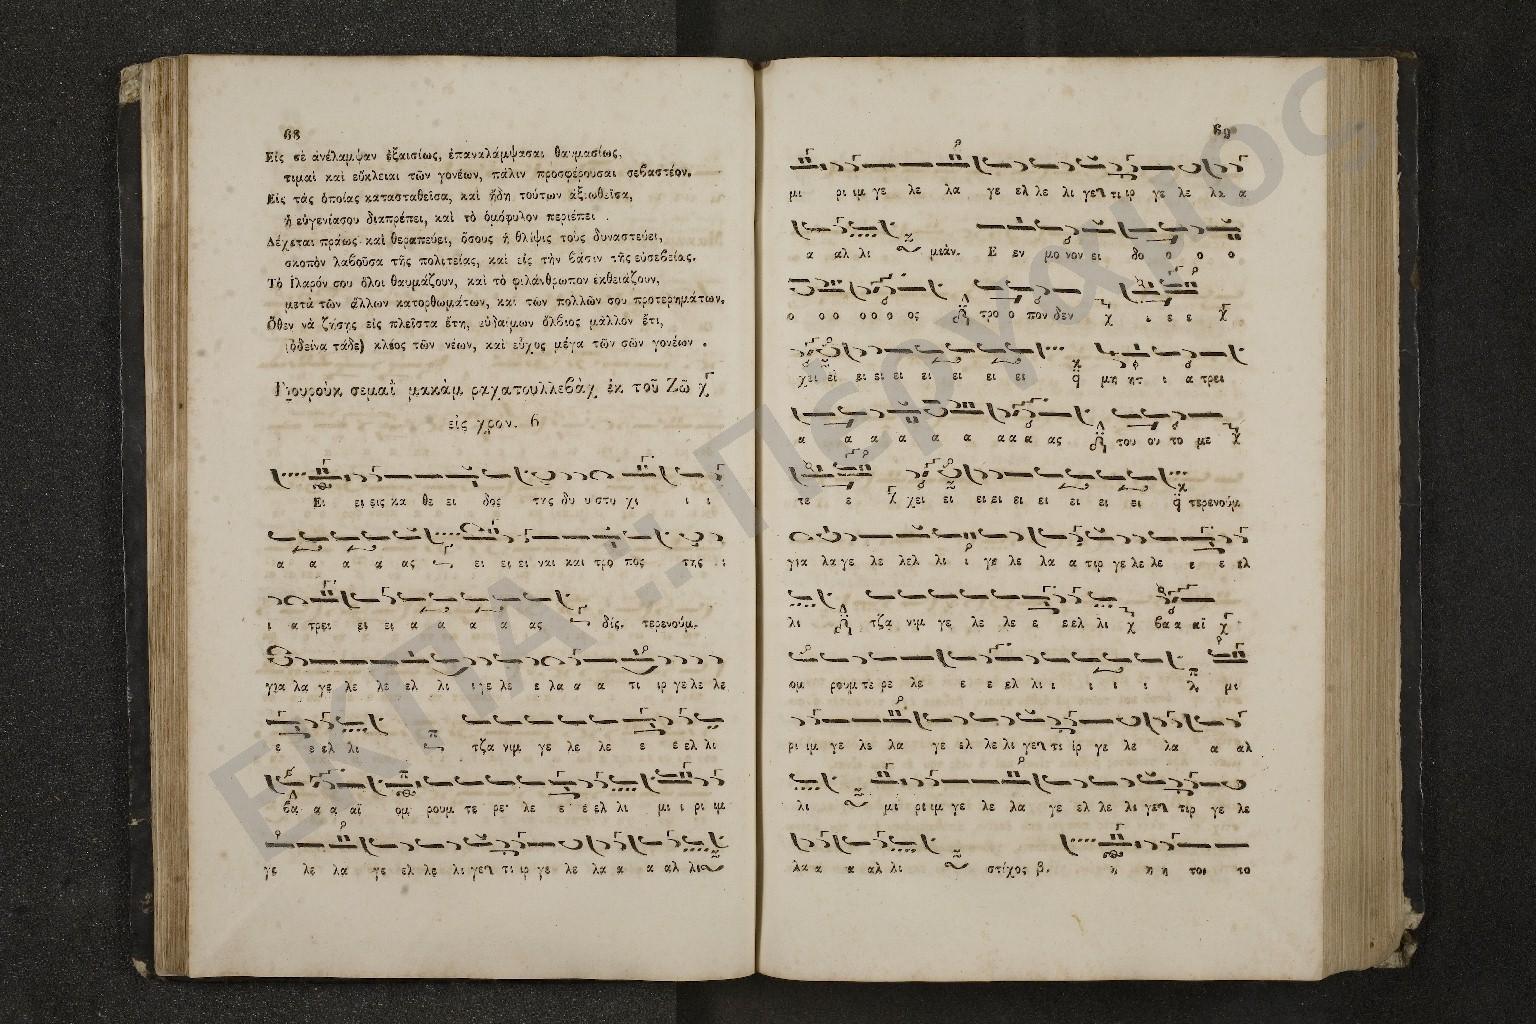 68
Εἰς σὲ ἀνέλαμψαν ἐξαισίως, ἐπαναλάμψασαι θαυμασίως,
τιμαὶ καὶ εὔκλειαι τῶν γονέων, πάλιν προσφέρουσαι σεβαστέον.
Εἰς τὰς ὁποίας κατασταθεῖσα, καὶ ἤδη τούτων ἀξιωθεῖσα,
ἡ εὐγενίασου διαπρέπει, καὶ τὸ ὁμόφυλον περιέπει .
Δέχεται πράως καὶ θεραπεύει, ὅσους ἡ θλίψις τοὺς δυναστεύει,
σκοπὸν λαβοῦσα τῆς πολιτείας, καὶ εἰς τὴν βάσιν τῆς εὐσεβείας.
Τὸ ἱλαρόν σου ὅλοι θαυμάζουν, καὶ τὸ φιλάνθρωπον ἐκθειάζουν,
μετὰ τῶν ἄλλων κατορθωμάτων, καὶ τῶν πολλῶν σου προτερημάτων.
Ὅθεν νὰ ζήσῃς εἰς πλεῖστα ἔτη, εὐδαίμων ὄλβιος μᾶλλον ἔτι,
(ὁδεῖνα τάδε) κλέος τῶν νέων, καὶ εὖχος μέγα τῶν σῶν γονέων .
Γιουροὺκ σεμαῒ μακὰμ ραχατουλλεβὰχ ἐκ τοῦ Ζῶ χ
εἰς χρον. 6
Ει ει εις κα θε ει δος της δυ υ στυ χι ι ι
α α α α ας ει ει ει ναι και τρο πος της ι
ι α τρει ει ει α α α α ας δίς. τερενούμ.
για λα γε λε λε ελ λι ι γε λε ε λα α α τι ιρ γε λε λε
ε ε ελ λι τζα νιμ γε λε λε ε ε ελ λι
βα α α αϊ ομ ρουμ τε ρε λε ε ε ελ λι μι ι ρι ιμ
γε λε λα γε ελ λε λι γελ τι ιρ γε λε λα α α αλ λι
69
μι ρι ιμ γε λε λα γε ελ λε λι γελ τι ιρ γε λε λα α
α αλ λι μιάν. Ε εν μο νον ει δο ο ο ο
ο ο ο ο ο ο ος τρο ο πον δεν χ ι ε ε χ
χει εἰ ει ει ει ει ει ει ει μη ητ ι α τρει
α α α α α α α α α ας του ου το με χ
τε ε χ χει ει ει ει ει ει ει ει ει τερενούμ
για λα γε λε λελ λι ι γε λε λα α τιρ γε λε λε ε ε ελ
λι τζα νιμ γε λε λε ε ε ελ λι χ βα α αϊ χ
ομ ρουμ τε ρε λε ε ε ελ λι ι ι ι ι λι μι
ρι ιμ γε λε λα γε ελ λε λι γελ τι ίρ γε λε λα α αλ
λι μι ρι ιμ γε λε λα γε ελ λε λι γελ τιρ γε λε
λα α α αλ λι στίχος β. η η η τοι το
ΕΚΠΑ :: Πέργαμος